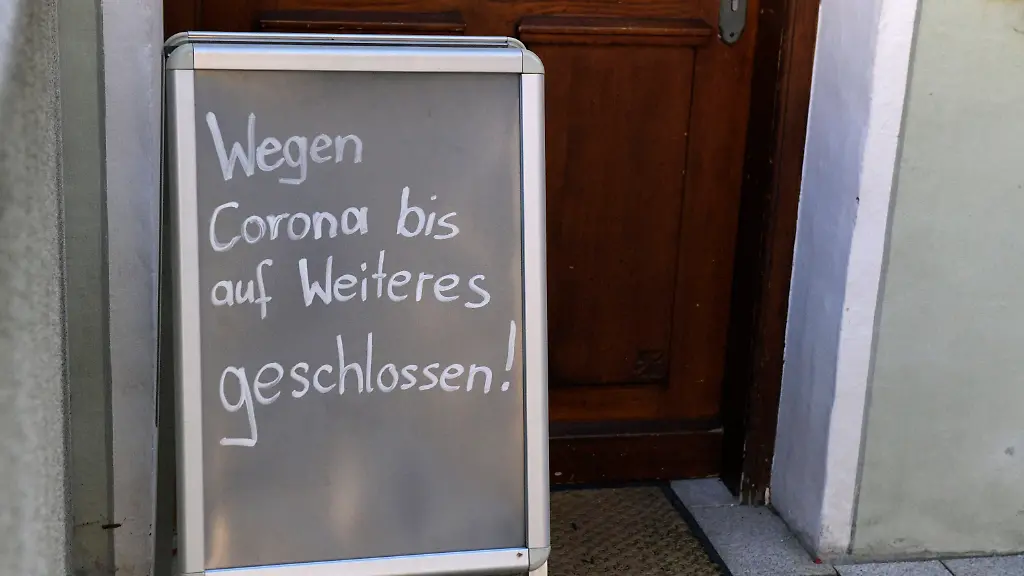 Wegen
Corona bis
auf Weiteres
geschlossen!